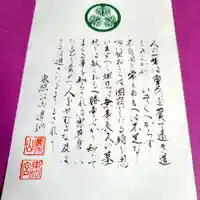 人の一生は重荷を負て遠き道
をゆくかことし いそくへからす
不自由を常とおもへは不足なし
心に望おこらは困窮したる時を思
ひ出すへし 堪忍は無事長久の基
いかりは敵とおもへ 勝事はかり知て
まくる事をしらされは害其身に
いたる おのれを責て人をせむるな
及はさるは過たるよりまされり
東照公御遺訓